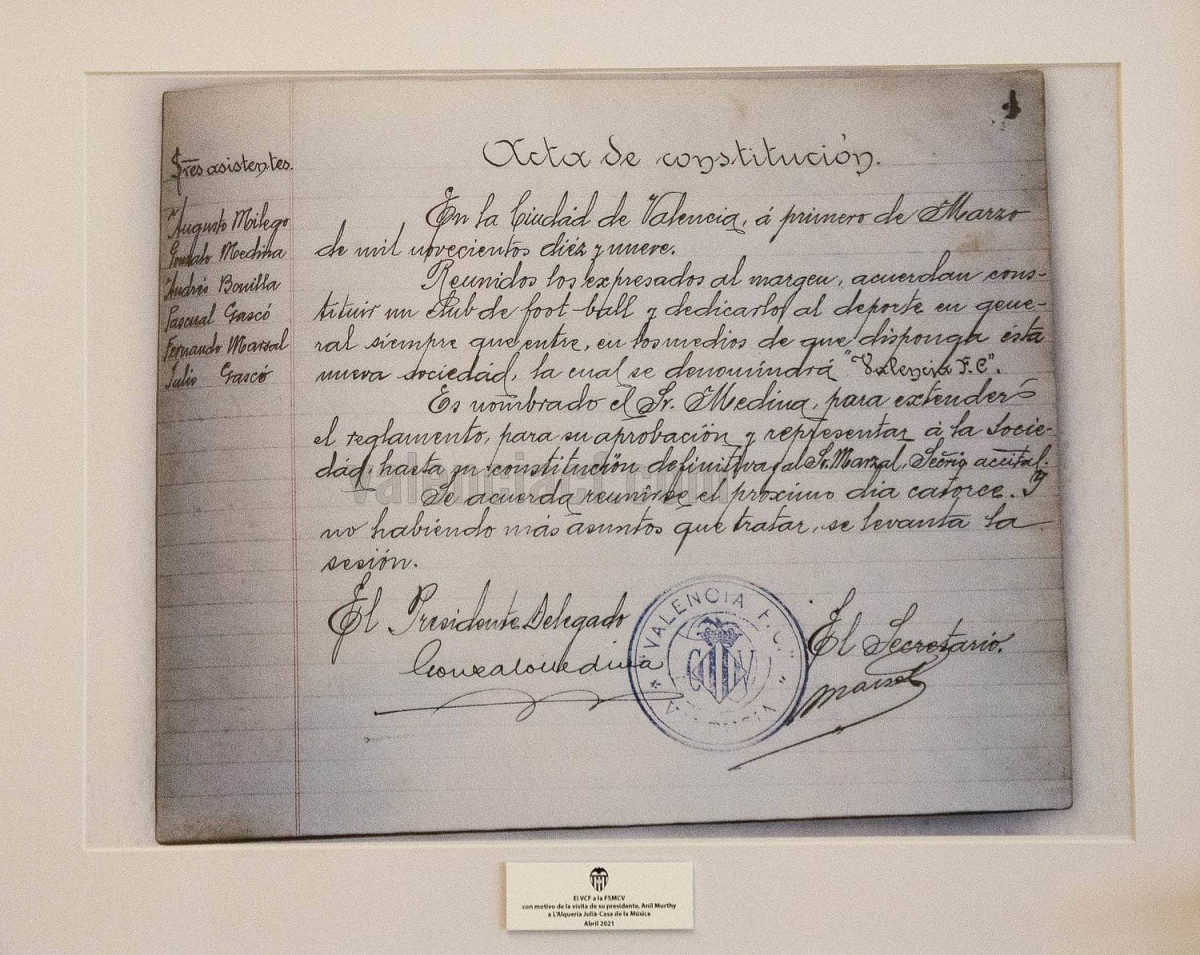 1
Sres asistentes.
Augusto Milego
Gonzalo Medina
Andrés Bonilla
Pascual Gascó
Fernando Marzal
Julio Gascó
Acta de constitución.
En la Ciudad de Valencia, á primero de Marzo
de mil novecientos diéz y nueve.
Reunidos los expresados al margen, acuerdan cons-
tituir un Club de foot-ball y dedicarlo, al deporte en gene-
ral siempre que entre, en los medios de que disponga ésta
nueva sociedad, la cual se denomindrá "Valencia F.C".
Es nombrado el Sr. Medina, para extender
el reglamento, para su aprobación y representar á la Socie-
dad, hasta su constitución definitiva y al Sr. Marzal, Secrio accital.
Se acuerda reunirse el próximo dia catorce. Y
no habiendo más asuntos que tratar, se levanta la
sesión.
El Presidente Delegado
Gonzalo Medina
El Secretario.
Marzal
"VALENCIA F.C."
VALENCIA
El VCF a la FSMCV
con motivo de la visita de su presidente, Anil Murthy
a L'Alqueria Julià-Casa de la Música
Abril 2021